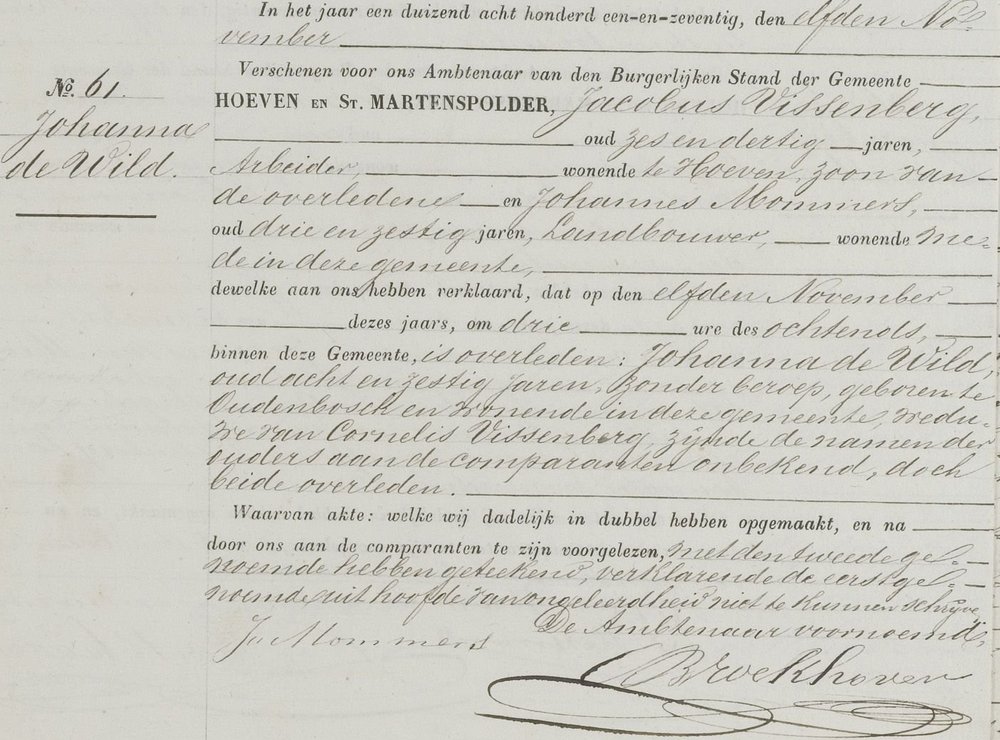 In het jaar een duizend acht honderd een-en-zeventig, den elfden No-
vember
Verschenen voor ons Ambtenaar van den Burgerlijken Stand der Gemeente
No. 61.
HOEVEN EN ST. MARTENSPOLDER, Jacobus Vissenberg,
Johanna
de Wild.
oud zes en dertig jaren,
Arbeider, wonende te Hoeven, zoon van
de overledene en Johannes Mommers,
oud drie en zestig jaren, Landbouwer, wonende me-
de in deze gemeente,
dewelke aan ons hebben verklaard, dat op den elfden November
dezes jaars, om drie ure des ochtends,
binnen deze Gemeente, is overleden: Johanna de Wild,
oud acht en zestig jaren, zonder beroep, geboren te
Oudenbosch en wonende in deze gemeente, wedu-
we van Cornelis Vissenberg, zijnde de namen der
ouders aan de comparanten onbekend, doch
beide overleden.
Waarvan akte: welke wij dadelijk in dubbel hebben opgemaakt, en na
door ons aan de comparanten te zijn voorgelezen, met den tweede ge-
noemde hebben geteekend, verklarende de eerstge-
noemde uit hoofde van ongeleerdheid niet te kunnen schrijve
De Ambtenaar voornoemd,
J. Mommers
Broekhoven